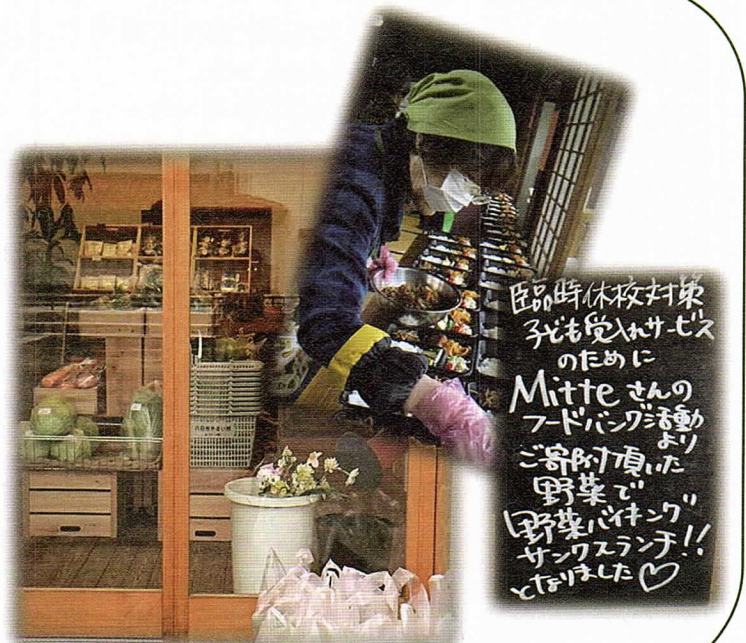 臨時休校対策
子ども受入れサービス
のために
Mitteさんの
フードバンク活動
より
ご寄附頂いた
野菜で
野菜バイキング
サンクスランチ!!
となりました♡